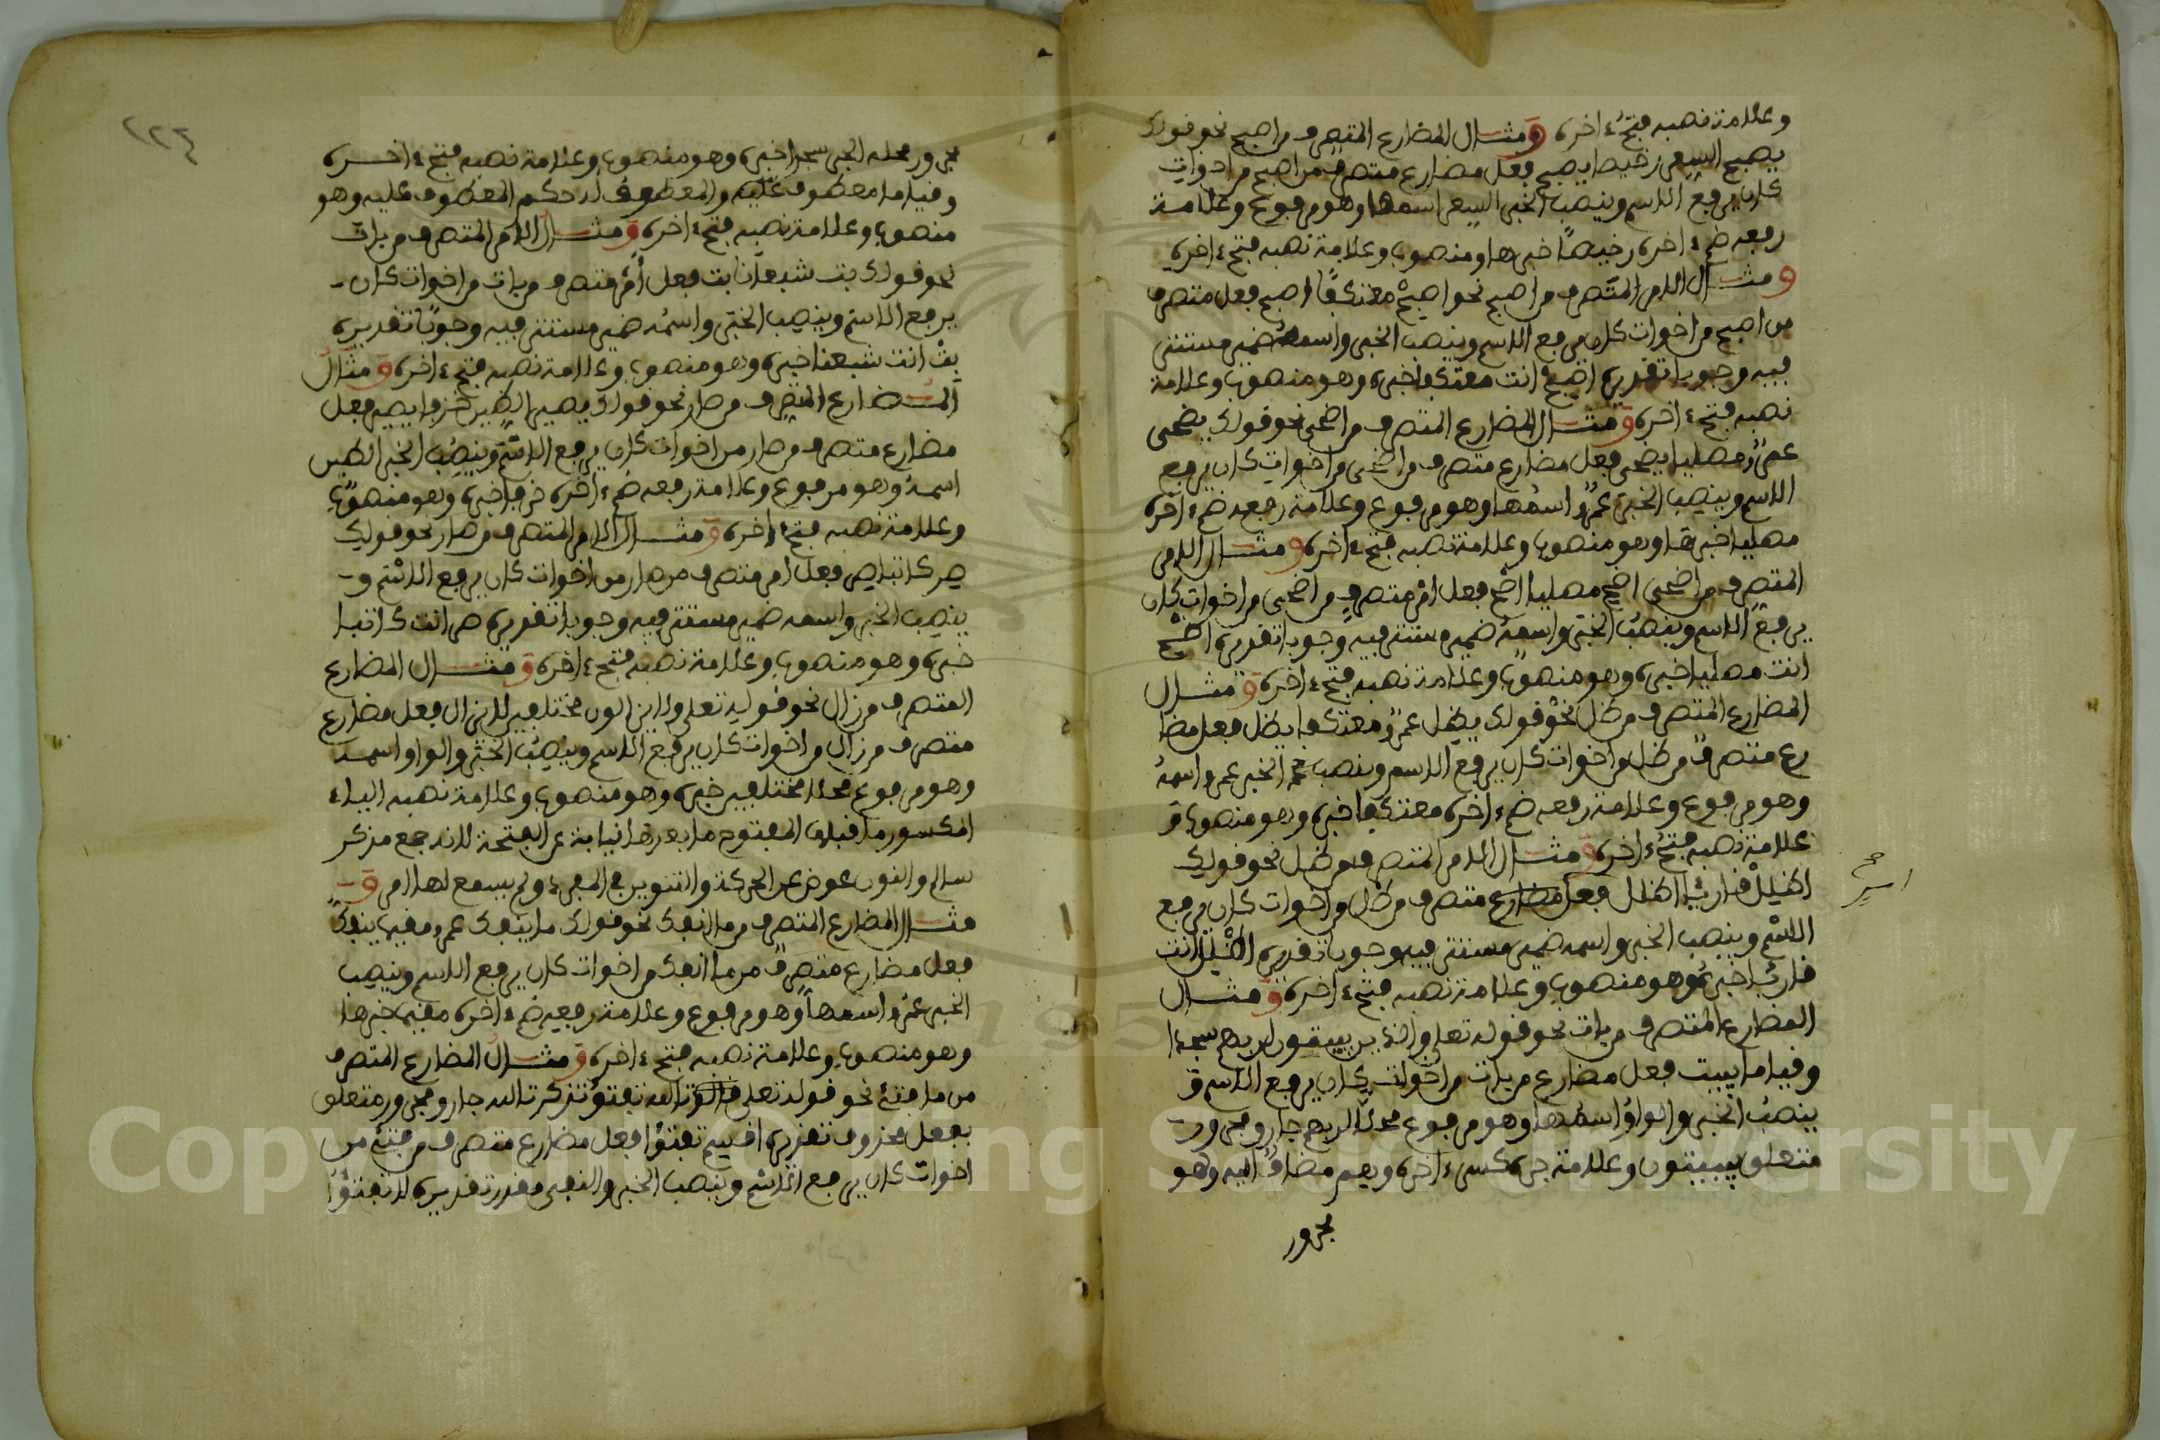 وعلامة نصبه فتحة اخره ومثال المضارع المتصرف من اصبح نحو قولك
يصبح السعر رخيصا يصبح فعل مضارع متصرف من اصبح من اخوات
كان يرفع الاسم وينصب الخبر السعر اسمها وهو مرفوع وعلامة
رفعه ضمة اخره رخيصا خبرها ومنصوب وعلامة نصبه فتحة اخره
ومثال الامر المتصرف من اصبح نحو اصبح معتكفا اصبح فعل متصرف
من اصبح من اخوات كان يرفع الاسم وينصب الخبر واسمه ضمير مستتر
فيه وجوبا تقديره اصبح انت معتكفا خبره وهو منصوب وعلامة
نصبه فتحة اخره ومثال المضارع المتصرف من اضحى نحو قولك يضحى
عمرو مصليا يضحى فعل مضارع متصرف من اضحى من اخوات كان يرفع
الاسم وينصب الخبر عمرو اسمها وهو مرفوع وعلامة رفعه ضمة اخره
مصليا خبرها وهو منصوب وعلامة نصبه فتحة اخره ومثال الامر
المتصرف من اضحى اضح مصليا اضح فعل امر متصرف من اضحى من اخوات كان
يرفع الاسم وينصب الخبر واسمه ضمير مستتر فيه وجوبا تقديره اضح
انت مصليا خبره وهو منصوب وعلامة نصبه فتحة اخره ومثال
المضارع المتصرف من ظل نحو قولك يظل عمرو معتكفا يظل فعل مضا
رع متصرف من ظل من اخوات كان يرفع الاسم وينصب الخبر عمرو اسمه
وهو مرفوع وعلامة رفعه ضمة اخره معتكفا خبره وهو منصوب و
علامة نصبه فتحة اخره ومثال الامر المتصرف من ظل نحو قولك
اظلل قارئا اظلل فعل مضارع متصرف من ظل من اخوات كان يرفع
امر صح
الاسم وينصب الخبر واسمه ضمير مستتر فيه وجوبا تقديره اظلل انت
قارئا خبره وهو منصوب وعلامة نصبه فتحة اخره ومثال
المضارع المتصرف من بات نحو قوله تعلى والذين يبيتون لربهم سجدا
وقياما يبيت فعل مضارع من بات من اخوات كان يرفع الاسم و
ينصب الخبر والواو اسمها وهو مرفوع محلا لربهم جار ومجرور
متعلق بيبيتون وعلامة جره كسرة اخره وهم مضاف اليه وهو
مجرور
١٢٤
مجرور محله الجر سجدا خبره وهو منصوب وعلامة نصبه فتحة اخره
وقياما معطوف عليه والمعطوف له حكم المعطوف عليه وهو
منصوب وعلامة نصبه فتحة اخره ومثال الامر المتصرف من بات
نحو قولك بت شبعانا بت فعل امر متصرف من بات من اخوات كان
يرفع الاسم وينصب الخبر واسمه ضمير مستتر فيه وجوبا تقديره
بت انت شبعنا خبره وهو منصوب وعلامة نصبه فتحة اخره ومثال
المضارع المتصرف من صار نحو قولك يصير الطين خزفا يصير فعل
مضارع متصرف من صار من اخوات كان يرفع الاسم وينصب الخبر الطين
اسمه وهو مرفوع وعلامة رفعه ضمة اخره خزفا خبره وهو منصوب
وعلامة نصبه فتحة اخره ومثال الامر المتصرف من صار نحو قولك
صر كاتبا صر فعل امر متصرف من صار من اخوات كان يرفع الاسم و
ينصب الخبر واسمه ضمير مستتر فيه وجوبا تقديره صر انت كاتبا
خبره وهو منصوب وعلامة نصبه فتحة اخره ومثال المضارع
المتصرف من زال نحو قوله تعلى ولا يزالون مختلفين لا يزال فعل مضارع
متصرف من زال من اخوات كان يرفع الاسم وينصب الخبر والواو اسمه
وهو مرفوع محلا مختلفين خبره وهو منصوب وعلامة نصبه الياء
المكسور ما قبلها المفتوح ما بعدها نيابة عن الفتحة لانه جمع مذكر
سالم والنون عوض عن الحركة والتنوين في المفرد ولم يسمع لها امر و
مثال المضارع المتصرف من ما انفك نحو قولك ما ينفك عمرو مقيما ينفك
فعل مضارع متصرف من ما انفك من اخوات كان يرفع الاسم وينصب
الخبر عمرو اسمها وهو مرفوع وعلامة رفعه ضمة اخره مقيما خبرها
وهو منصوب وعلامة نصبه فتحة اخره ومثال المضارع المتصرف
من ما فتئ نحو قوله تعلى قالوا تالله تفتؤ تذكر تالله جار ومجرور متعلق
بفعل محذوف تقديره اقسم تفتؤا فعل مضارع متصرف من فتئ من
اخوات كان يرفع الاسم وينصب الخبر والنفي مقدر تقديره لا تفتؤا
Copyright © King Saud University
1957